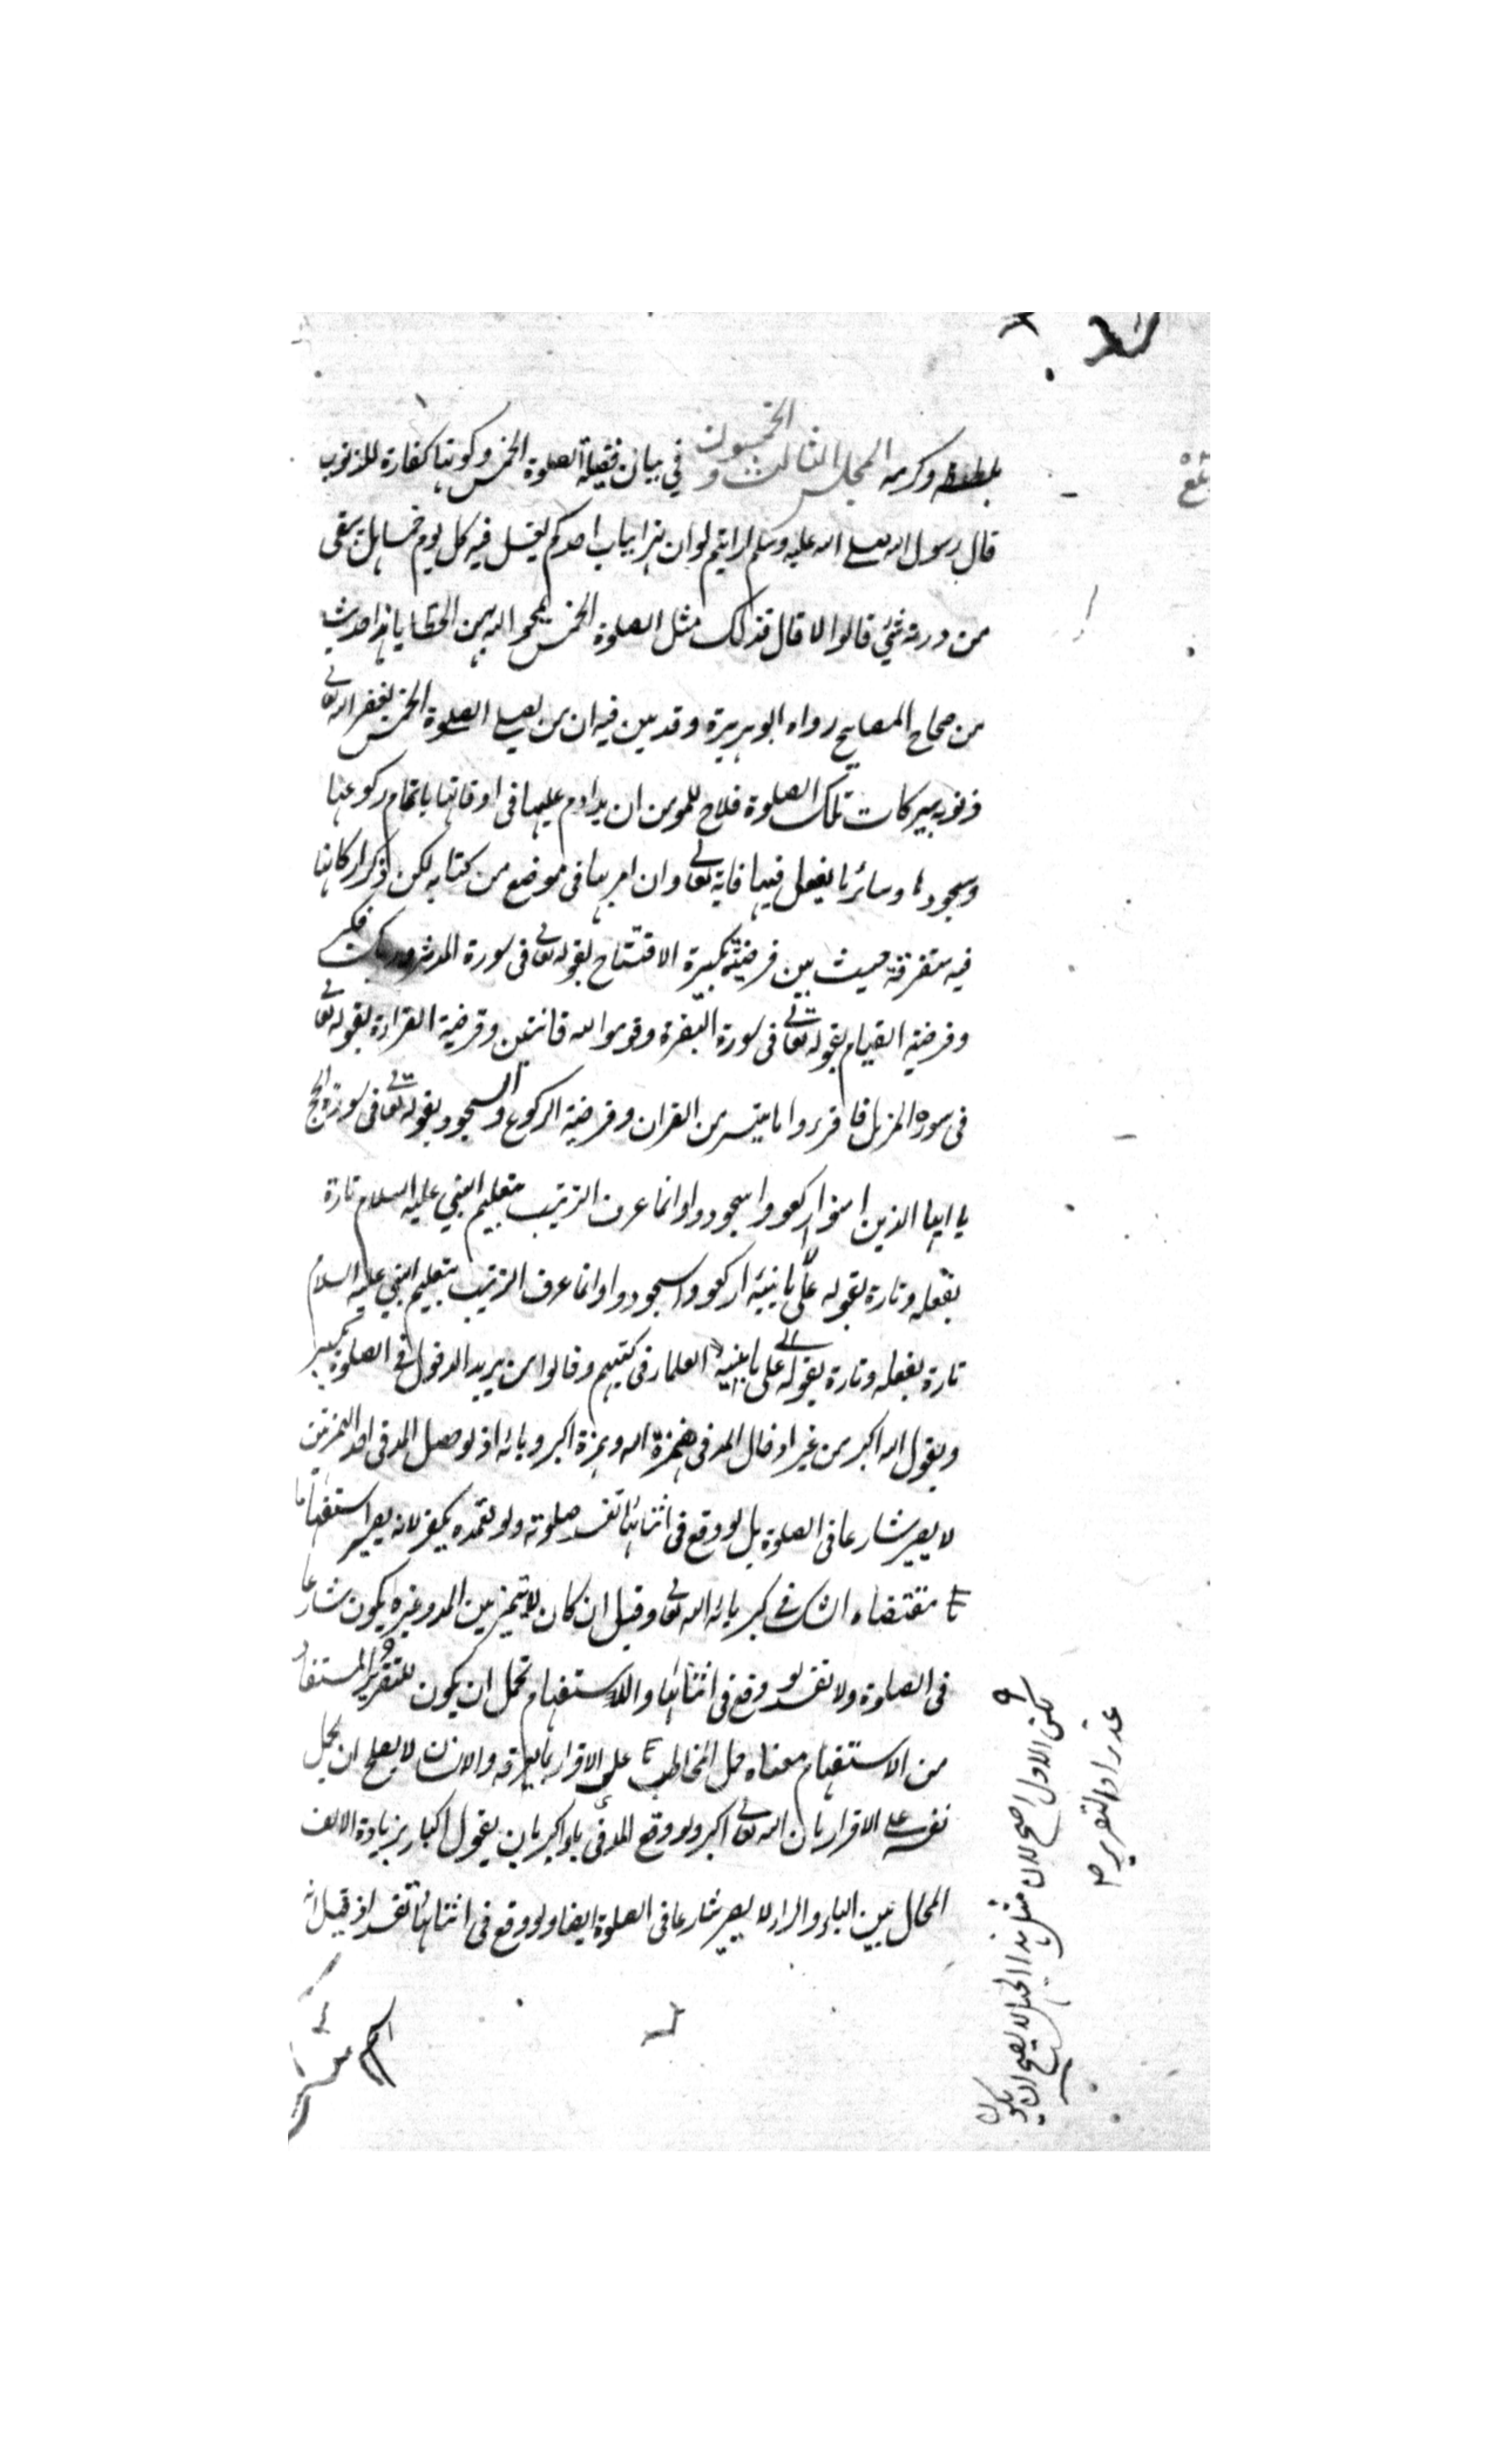 بلطفه وكرمه المجلس الثالث والخمسون في بيان فضيلة الصلوة الخمس وكونها كفارة للذنوب
قال رسول الله صلى الله عليه وسلم ارايتم لو ان نهرا بباب احدكم يغتسل فيه كل يوم خمسا هل يبقى
من درنه شئ قالوا لا قال فذلك مثل الصلوة الخمس يمحو الله بهن الخطايا هذا حديث
من صحاح المصابيح رواه ابو هريرة وقد بين فيه ان من يصلي الصلوة الخمس يغفر الله تعالى
ذنوبه ببركات تلك الصلوة فلاح للمومن ان يداوم عليها في اوقاتها باتمام ركوعها
وسجودها وسائر ما يفعل فيها فانه تعالى وان امر بها في موضع من كتابه لكن ذكر اركانها
فيه متفرقة حيث بين فرضية تكبيرة الافتتاح بقوله تعالى في سورة المدثر وربك فكبر
وفرضية القيام بقوله تعالى في سورة البقرة وقوموا لله قانتين وفرضية القراءة بقوله تعالى
في سورة المزمل فاقرءوا ما تيسر من القران وفرضية الركوع والسجود بقوله تعالى في سورة الحج
يا ايها الذين امنوا اركعوا واسجدوا وانما عرف الترتيب بتعليم النبي عليه السلام تارة
بفعله وتارة بقوله على ما بينه اركعوا واسجدوا وانما عرف الترتيب بتعليم النبي عليه السلام
تارة بفعله وتارة بقوله على ما بينه العلماء في كتبهم وقالوا من يريد الدخول في الصلوة يكبر
ويقول الله اكبر من غير ادخال المد في همزة الله وهمزة اكبر وبائه اذ لو حصل المد في احد الهمزتين
لا يصير شارعا في الصلوة بل لو وقع في اثنائها تفسد صلوته ولو تعمده يكفر لانه يصير استفهاما
مقتضاه الشك في كبريائه الله تعالى وقيل ان كان لا يتميز بين المد وغيره يكون شارعا
في الصلوة ولا تفسد لو وقع في اثنائها والاستفهام تحمل ان يكون للتقرير المستفاد
من الاستفهام معناه حمل المخاطب على الاقرار بما يعرفه والانسان لا يصلح ان يحمل
نفسه على الاقرار بان الله تعالى اكبر ولو وقع المد في باء اكبر بان يقول اكبار بزيادة الالف
المحال بين الباء والراء لا يصير شارعا في الصلوة ايضا ولو وقع في اثنائها تفسد اذ قيل انه
لكن الاول اصح لان مثل هذا الجهل لا يصح ان يكون
عذرا والتقرير